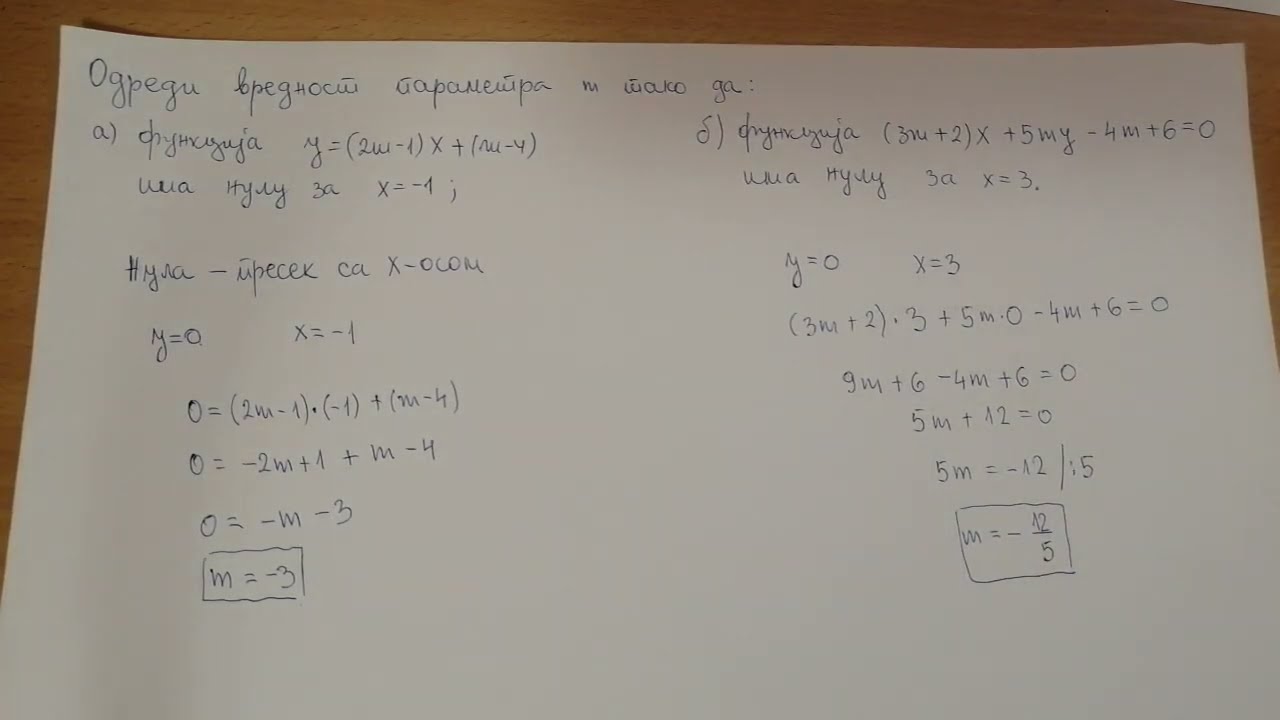 Одреди вредност параметра m тако да:
а) функција y=(2m-1)x+(m-4)
има нулу за x=-1;
Нула - пресек са x-осом
y=0 x=-1
0=(2m-1)·(-1)+(m-4)
0= -2m+1 + m-4
0= -m-3
m=-3
б) функција (3m+2)x+5my-4m+6=0
има нулу за x=3.
y=0 x=3
(3m+2)·3+5m·0-4m+6=0
9m+6-4m+6=0
5m+12=0
5m=-12 |:5
m=-12/5